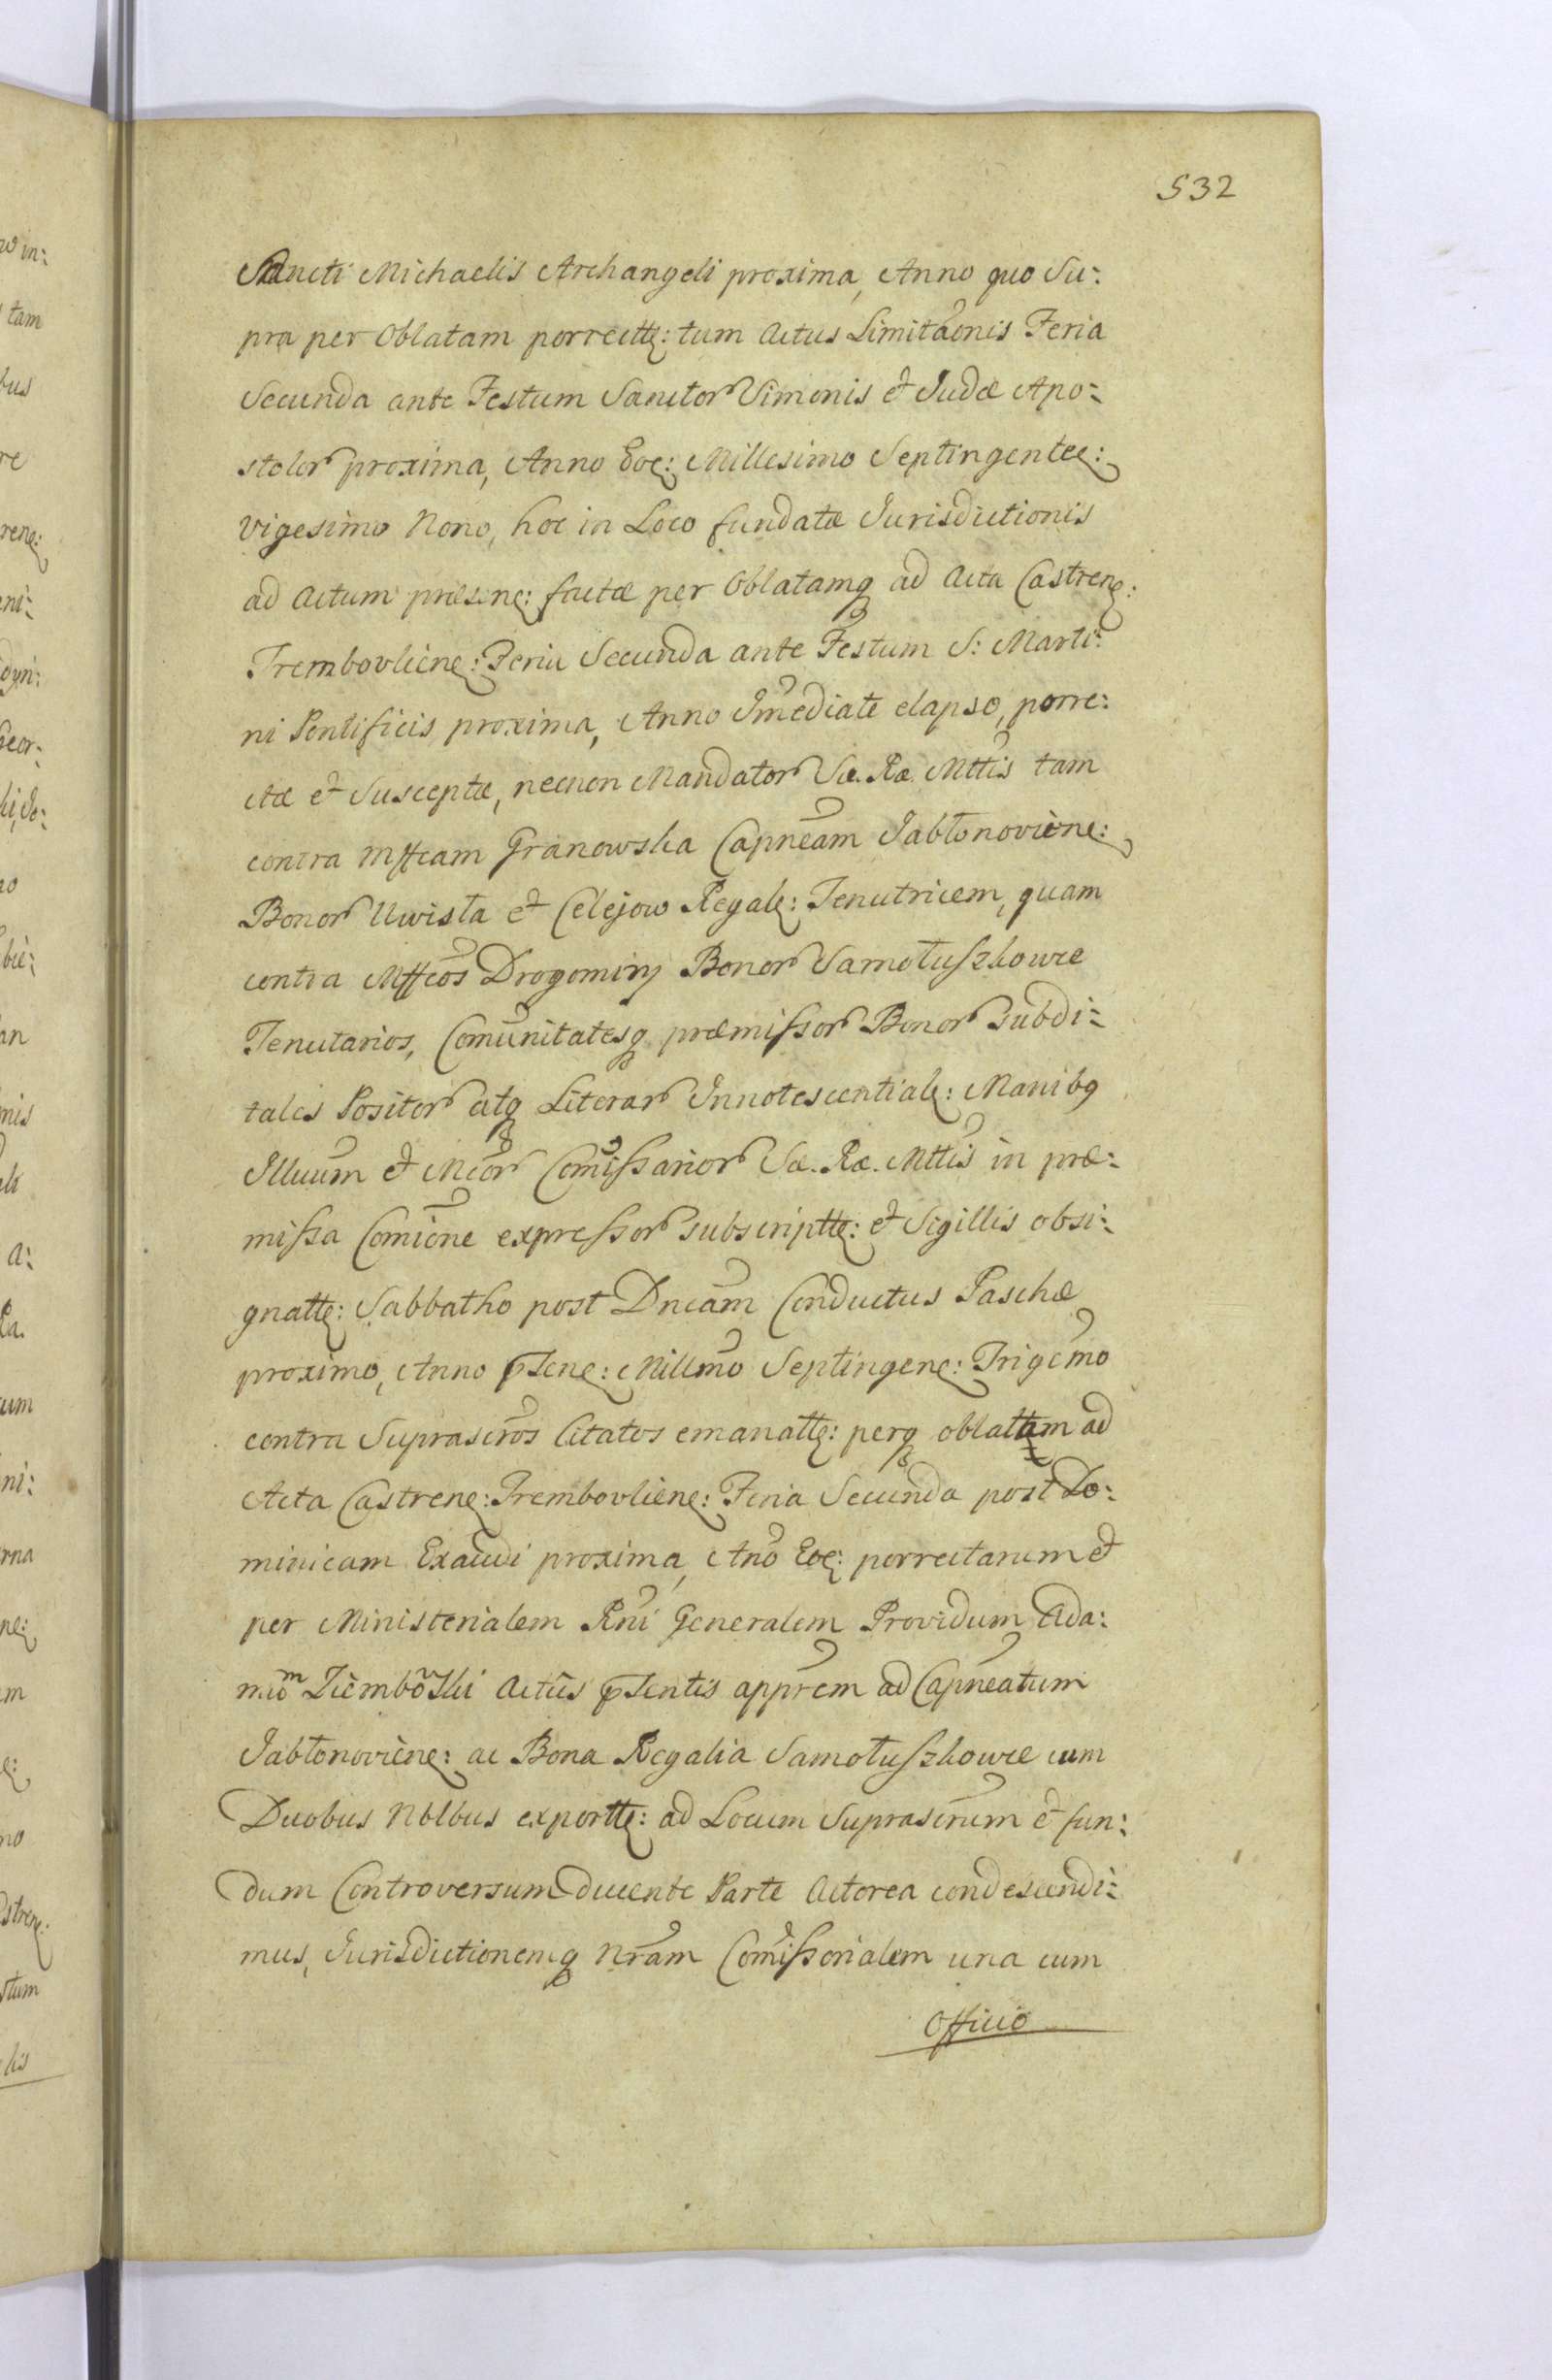 532
Sancti Michaelis Archangeli proxima, Anno quo Su:
pra per Oblatam porrectt: tum Actus Limitãonis Feria
Secunda ante Festum Sanctor Simonis et Judæ Apo:
stolor proxima, Anno Eoe: Millesimo Septingentee:
vigesimo Nono, hoc in Loco fundatæ Jurisdictionis
ad Actum præsene: factæ per Oblatamq ad Acta Castrene:
Trembovliene: Feria Secunda ante Festum S: Marti:
ni Pontificis proxima, Anno Im̃ediate elapso, porre:
ctæ et Susceptæ, necnon Mandator Sæ. Ræ. Mttis tam
contra Mffcam Granowska Capneãm Jabłonoviene:
Bonor Uwisła et Celejow Regale: Tenutricem, quam
contra Mffcos Drogomirÿ Bonor Samołuszkowce
Tenutarios, Com̃unitatesq præmissor Bonor subdi:
tales Positor atq Literar Innotescentiale: Manibq
Illuum et Mcor Com̃issarior Sæ. Ræ. Mttis in præ:
missa Comĩone expressor subscriptt: et Sigillis obsi:
gnatt: Sabbatho post Dncãm Conductus Paschæ
proximo, Anno pstene: Millm̃o Septingene: Trigem̃o
contra Suprascr̃os Citatos emanatt: perq oblattam ad
Acta Castrene: Trembovliene: Feria Secunda post Do:
minicam Exaudi proxima, An̂o Eoe: porrectarum et
per Ministerialem Rñi Generalem Providum Ada:
mum Ziembowski Actûs pstentis apprem̃ ad Capneatum
Jabłonoviene: ac Bona Regalia Samołuszkowce cum
Duobus Nblbus exportt: ad Locum Suprascrũm et fun:
dum Controversum ducente Parte Actorea condescendi:
mus, Jurisdictionemq Nrãm Com̃issorialem una cum
Officio